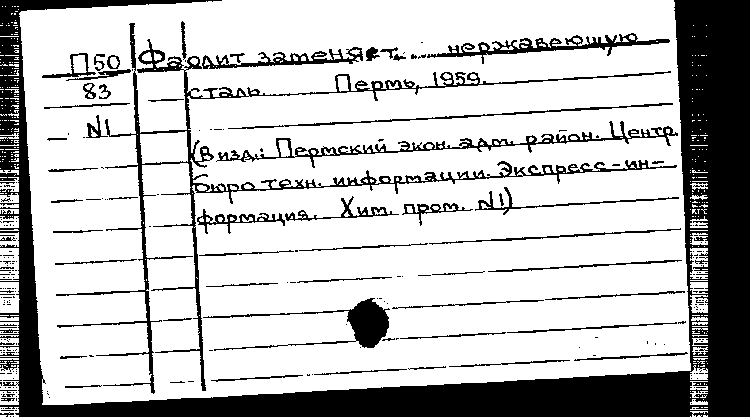 П50 Фаолит заменяет нержавеющую
83 сталь. Пермь, 1959.
N1
(В изд.: Пермский экон. адм. район. Центр.
бюро техн. информации. Экспресс-ин-
формация. Хим. пром. N1)